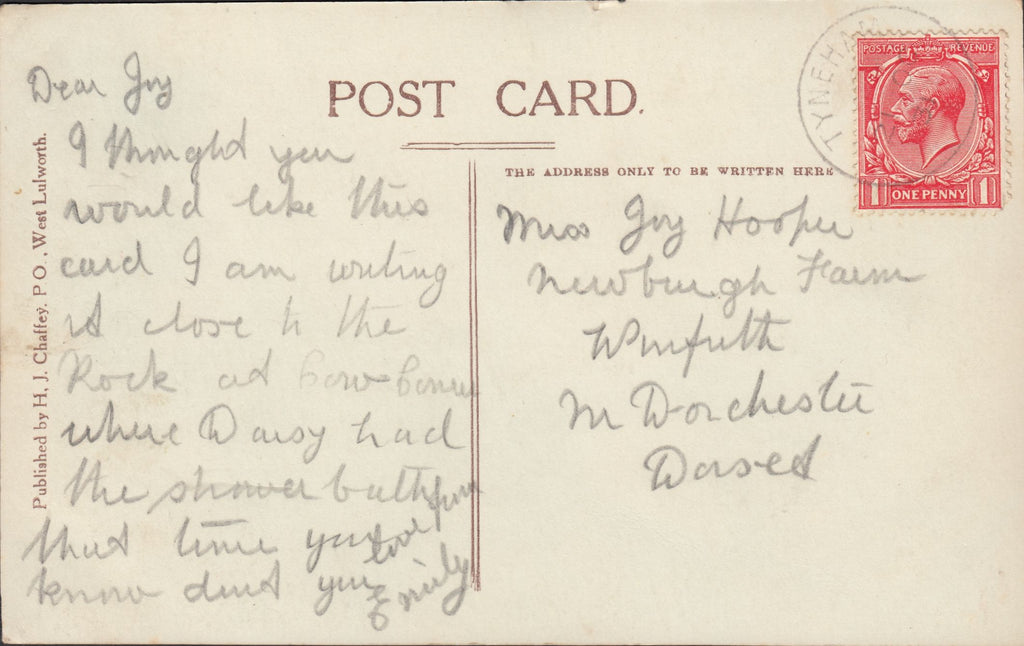 POST CARD.
THE ADDRESS ONLY TO BE WRITTEN HERE
Published by H. J. Chaffey. P.O., West Lulworth.
Dear Joy
I thought you
would like this
card I am writing
it close to the
Rock at
where Daisy had
the shower bath
that time you
know dont you
love from
Emily
Miss Joy Hooper
Newburgh Farm
Winfrith
Nr Dorchester
Dorset
TYNEHAM
POSTAGE REVENUE
1 ONE PENNY 1